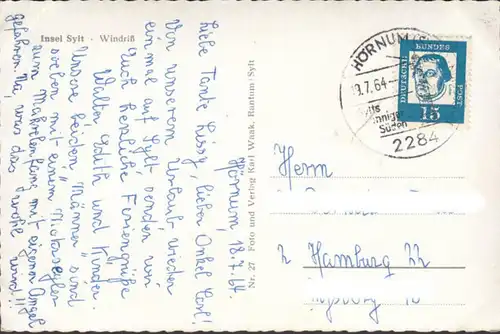 Insel Sylt · Windriß
Hörnum, 18.7.64
Liebe Tante Lissy, lieber Onkel Carl!
Von unserem Urlaub wieder
einmal auf Sylt senden wir
Euch herzliche Feriengrüße
Walter, Edith und Kinder.
Unsere beiden "Männer" sind
soeben mit einem Motorsegler
zum Makrelenfang mit eigener Angel
gefahren. Na, was das wohl wird!!!
Nr. 27 Foto und Verlag Karl Wonk, Rantum/Sylt
HÖRNUM (
7.64
Süden
2284
DEUTSCHE
BUNDES
POST
15
Herrn
2 Hamburg 22